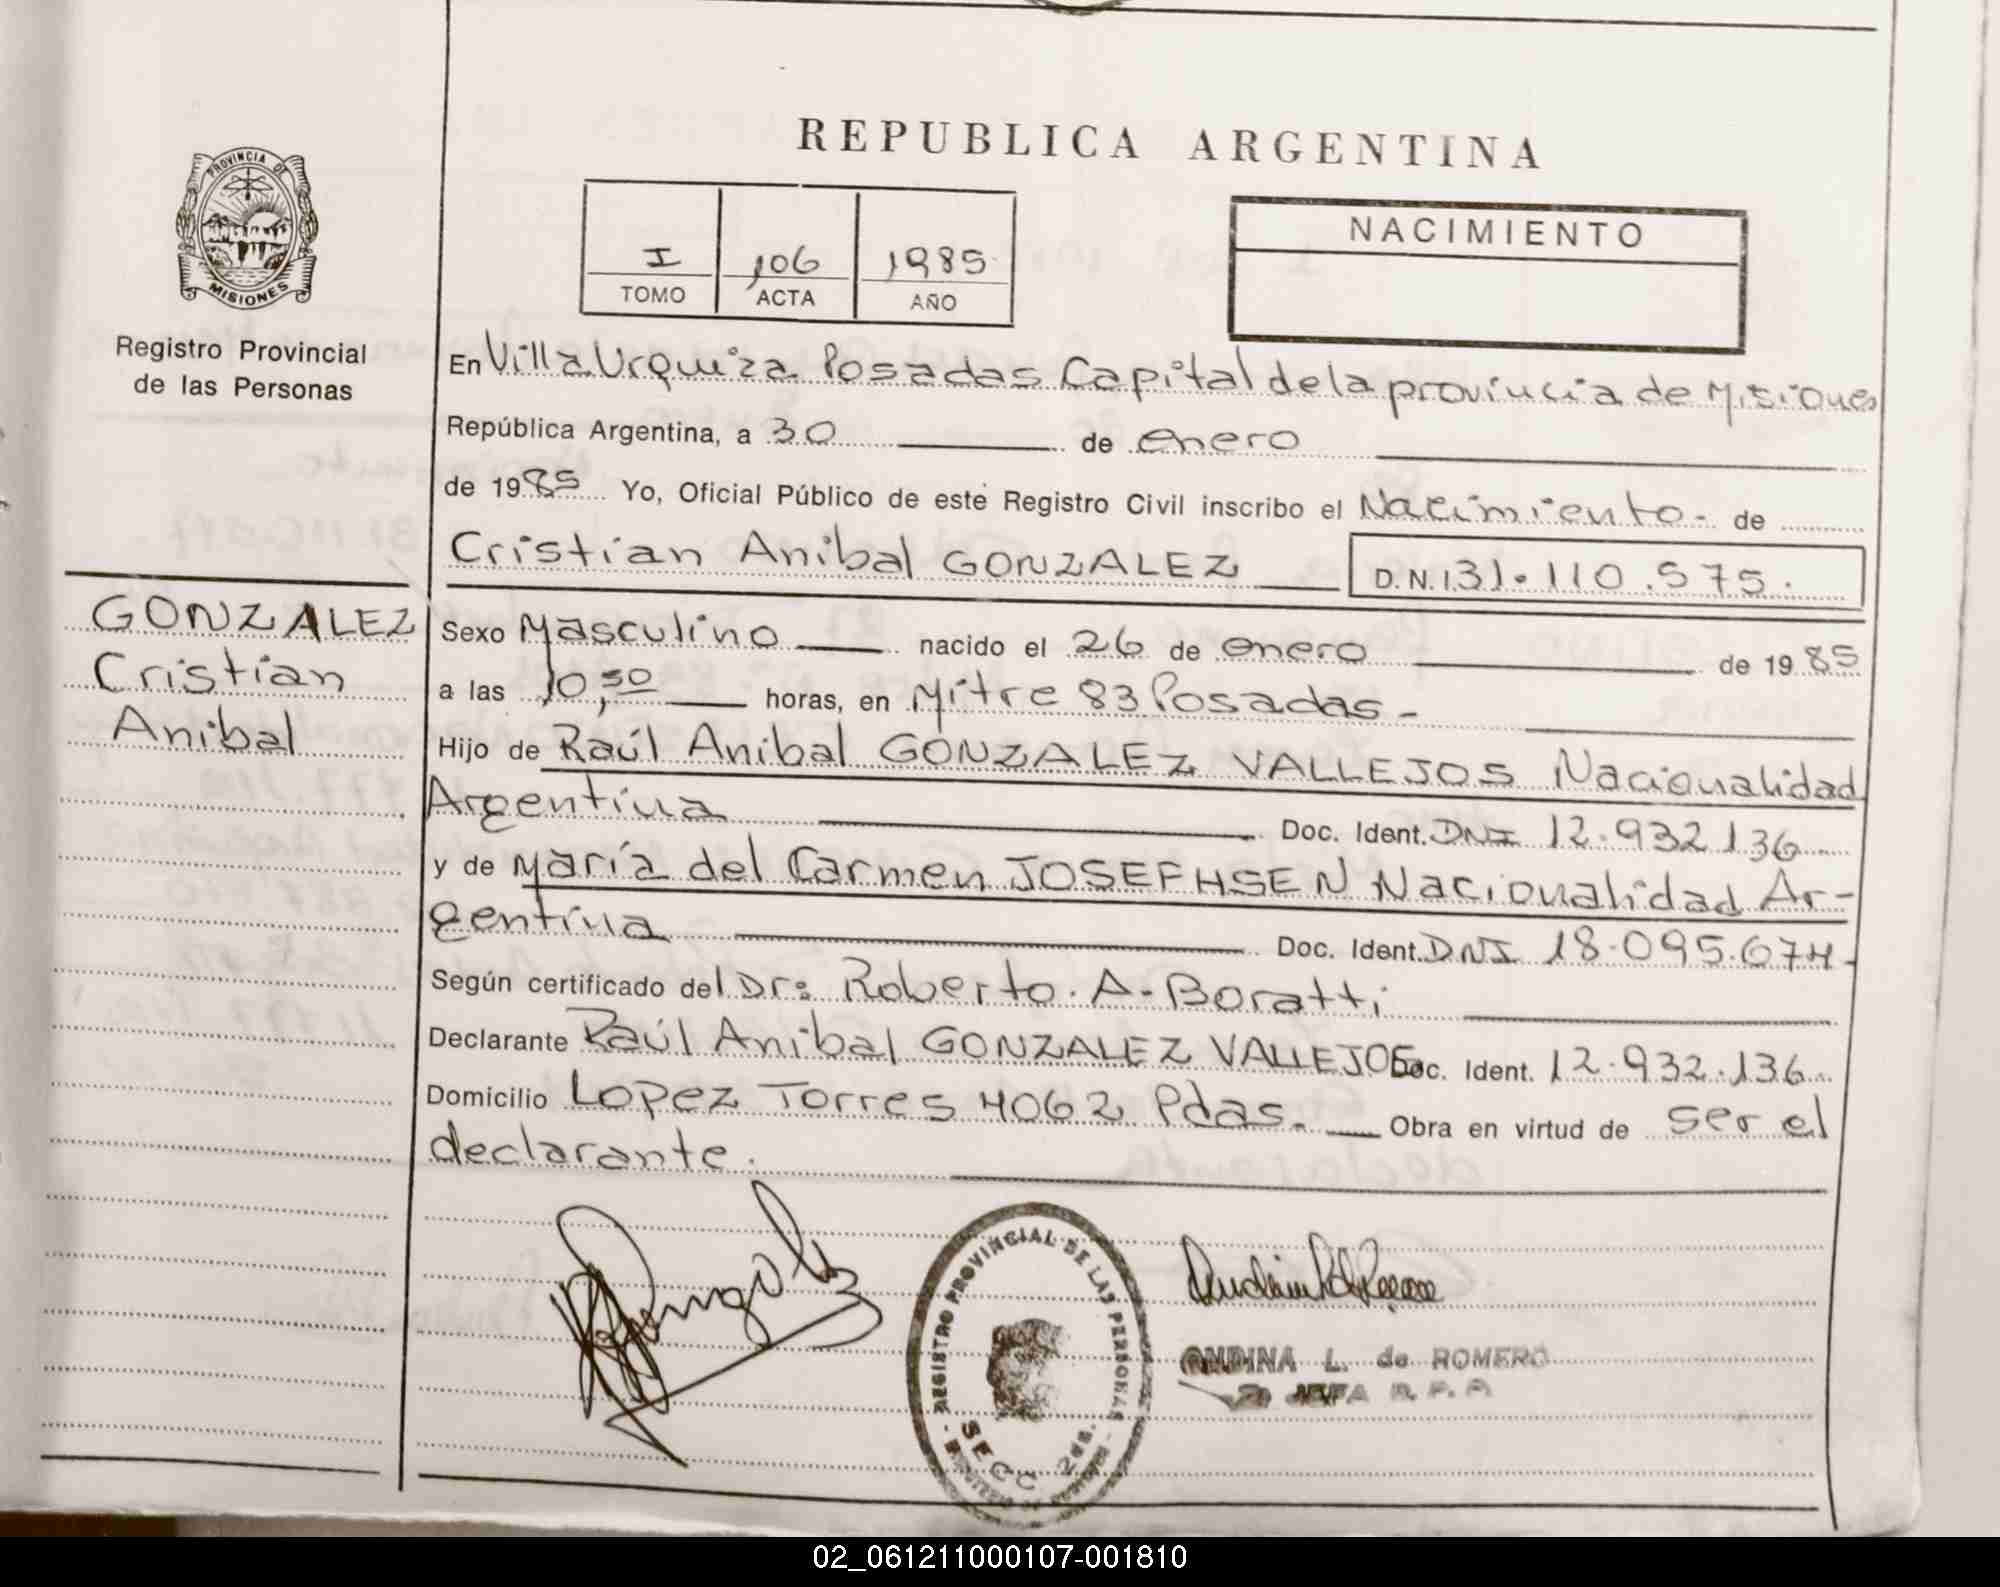 REPUBLICA ARGENTINA
PROVINCIA DE
MISIONES
Registro Provincial
de las Personas
I 106 1985
TOMO ACTA AÑO
NACIMIENTO
En Villa Urquiza Posadas Capital de la provincia de Misiones
República Argentina, a 30 de enero
de 1985 Yo, Oficial Público de este Registro Civil inscribo el Nacimiento - de
Cristian Anibal GONZALEZ D.N.I. 31.110.575.
GONZALEZ
Cristian
Anibal
Sexo Masculino nacido el 26 de enero de 1985
a las 10,50 horas, en Mitre 83 Posadas -
Hijo de Raúl Anibal GONZALEZ VALLEJOS Nacionalidad
Argentina Doc. Ident. DNI 12.932.136
y de María del Carmen JOSEFHSEN Nacionalidad Ar-
gentina Doc. Ident. DNI 18.095.674-
Según certificado del Dr: Roberto A. Boratti
Declarante Raúl Anibal GONZALEZ VALLEJOS Doc. Ident. 12.932.136
Domicilio LOPEZ TORRES 4062 Pdas. Obra en virtud de ser el
declarante.
REGISTRO PROVINCIAL DE LAS PERSONAS
SECC
ONDINA L. de ROMERO
JEFA R. P. P.
02_061211000107-001810